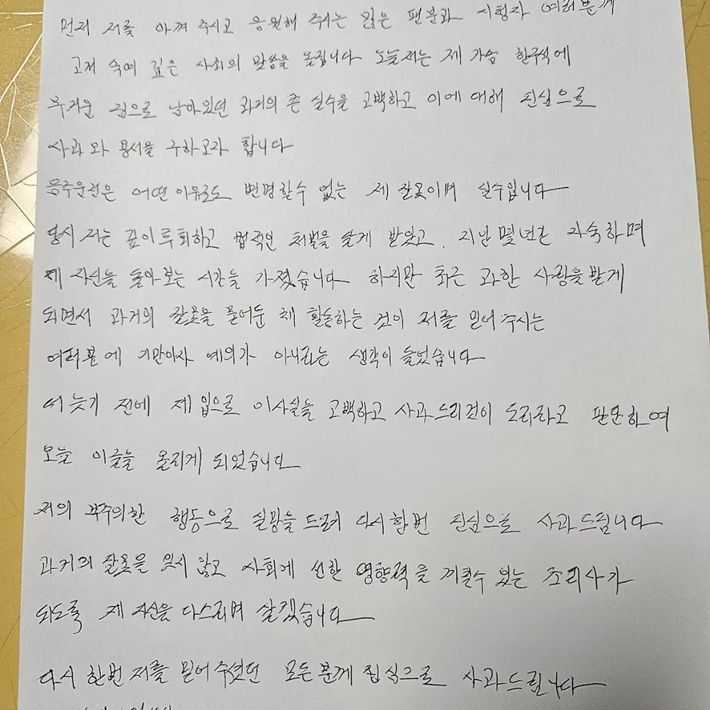 먼저 저를 아껴 주시고 응원해 주시는 많은 팬분과 시청자 여러분께
고개 숙여 깊은 사죄의 말씀을 올립니다 오늘 저는 제 가슴 한구석에
무거운 짐으로 남아있던 과거의 큰 실수을 고백하고 이에 대해 진심으로
사과와 용서를 구하고자 합니다
음주운전은 어떤 이유로도 변명할수 없는 제 잘못이며 실수입니다
당시 저는 깊이 후회하고 법적인 처벌을 달게 받았고, 지난 몇년간 자숙하며
제 자신을 돌아보는 시간을 가졌습니다 하지만 최근 과한 사랑을 받게
되면서 과거의 잘못을 묻어둔 채 활동하는 것이 저를 믿어 주시는
여러분에 기만이자 예의가 아니라는 생각이 들었습니다
더 늦기 전에 제 입으로 이 사실을 고백하고 사과드리것이 도리라고 판단하여
오늘 이글을 올리게 되었습니다
저의 부주의한 행동으로 실망을 드려 다시한번 진심으로 사과드립니다
과거의 잘못을 잊지 않고 사회에 선한 영향력을 끼칠수 있는 조리사가
되도록 제 자신을 다스리며 살겠습니다
다시 한번 저를 믿어 주셨던 모든 분께 진심으로 사과드립니다